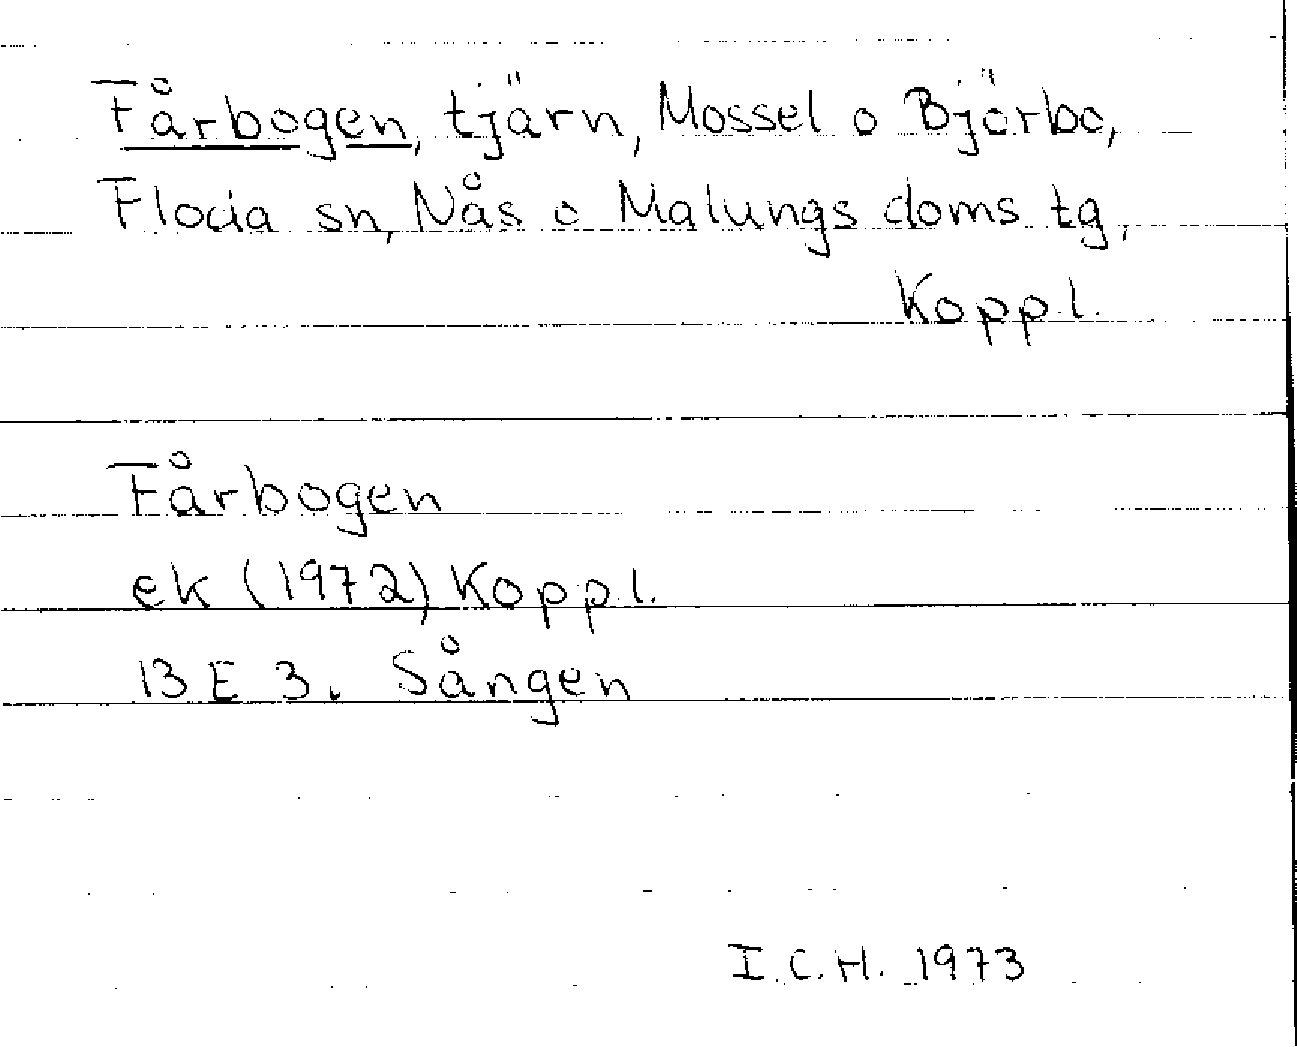 Fårbogen, tjärn, Mossel o Björbo,
Floda sn, Nås o Malungs doms. tg,
Koppl.
Fårbogen
ek (1972) Koppl.
13 E 3. Sången
I.C.H. 1973